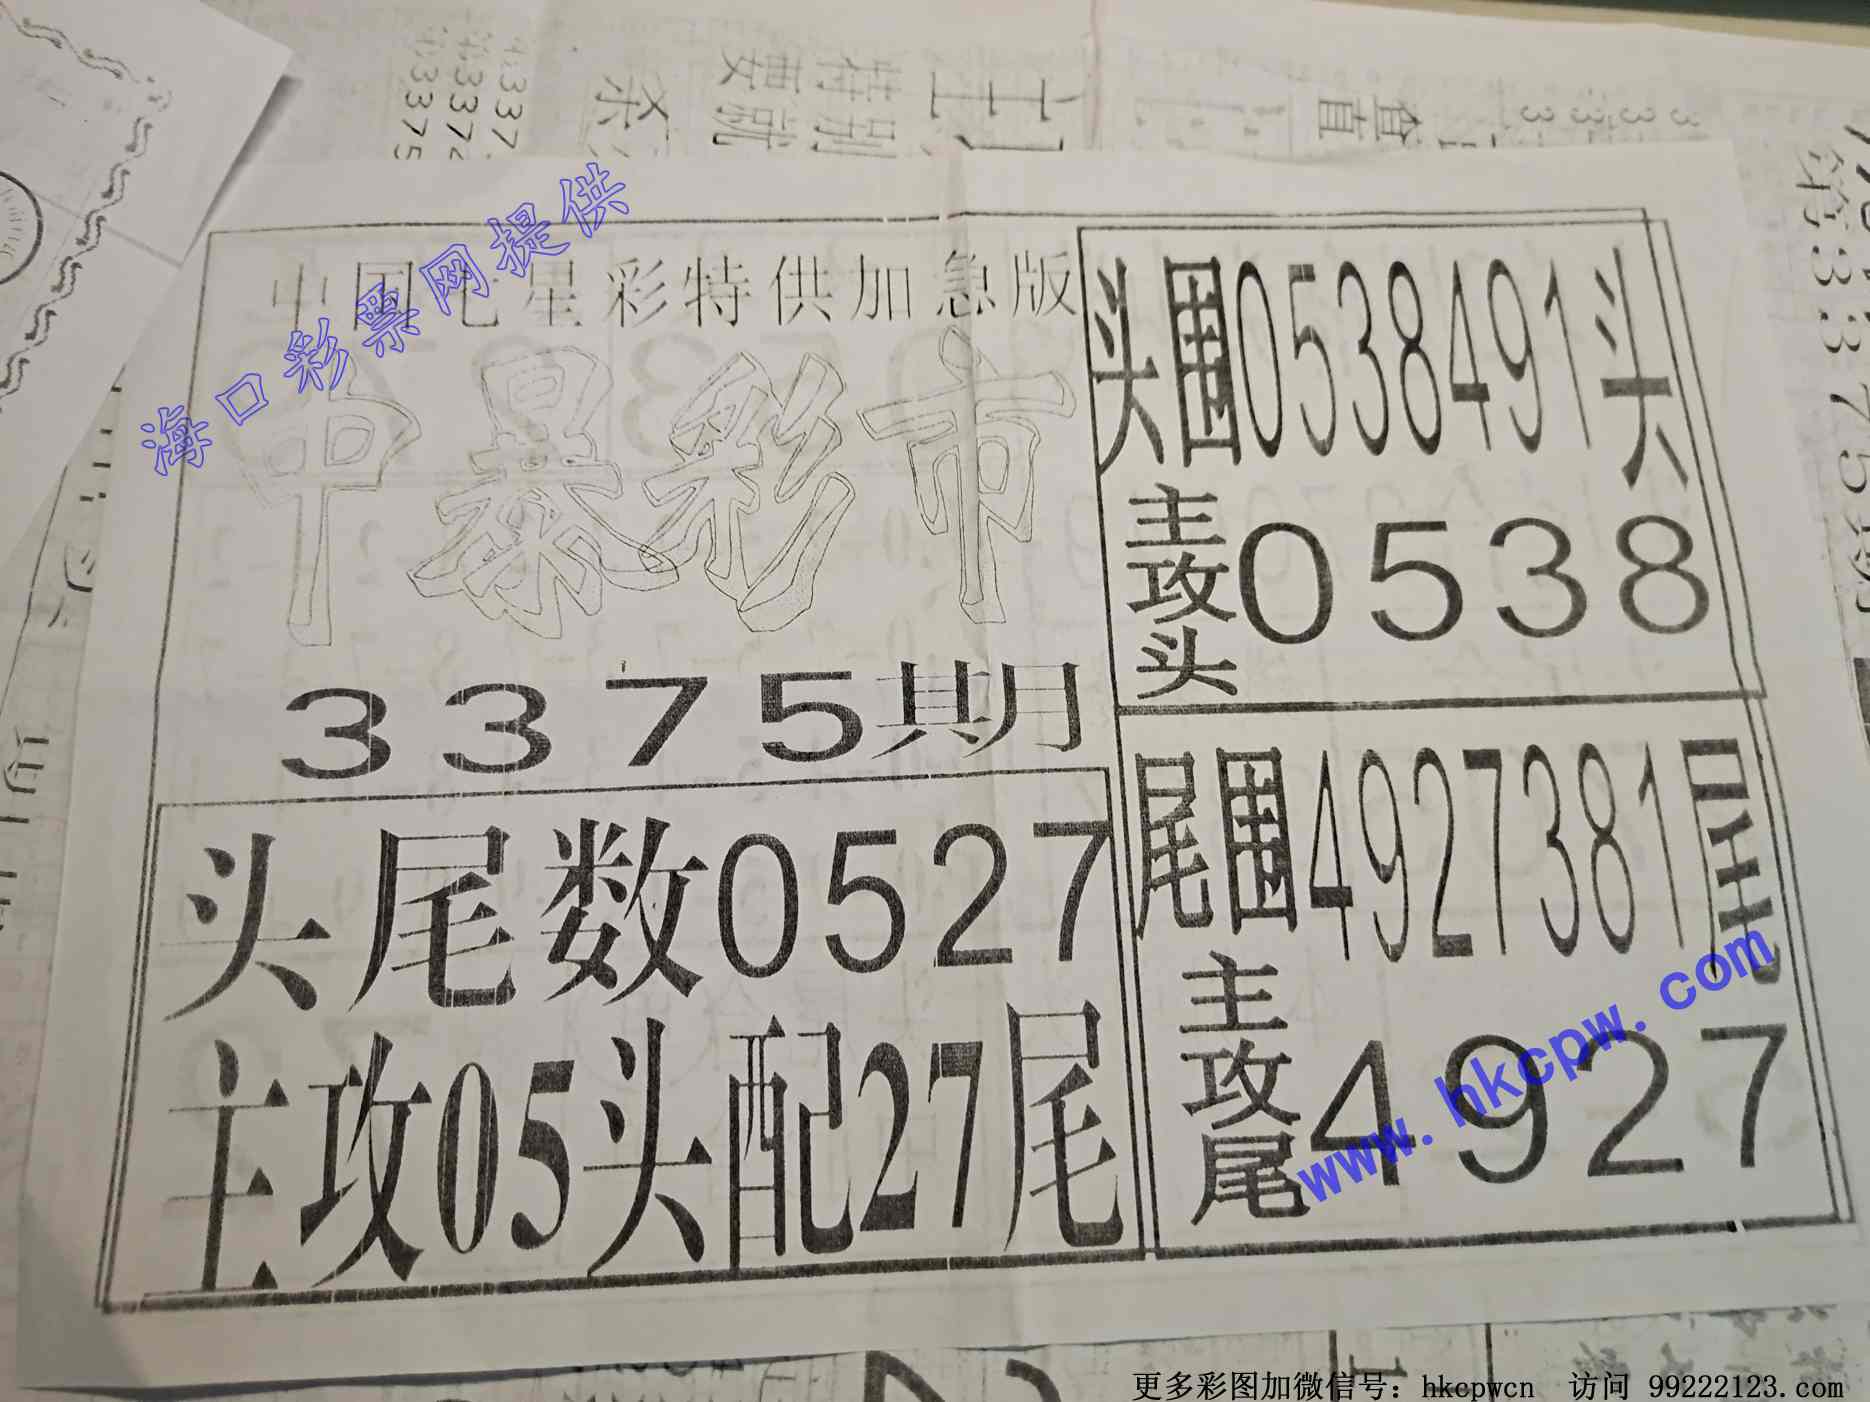 海口彩票网提供
中国七星彩特供加急版
中暴彩市
3375期
头尾数0527
主攻05头配27尾
头围0538491头
主攻头0538
尾围4927381尾
主攻尾4927
www.hkcpw.com
特别
要就
第3375期
更多彩图加微信号：hkcpwcn 访问 99222123.com